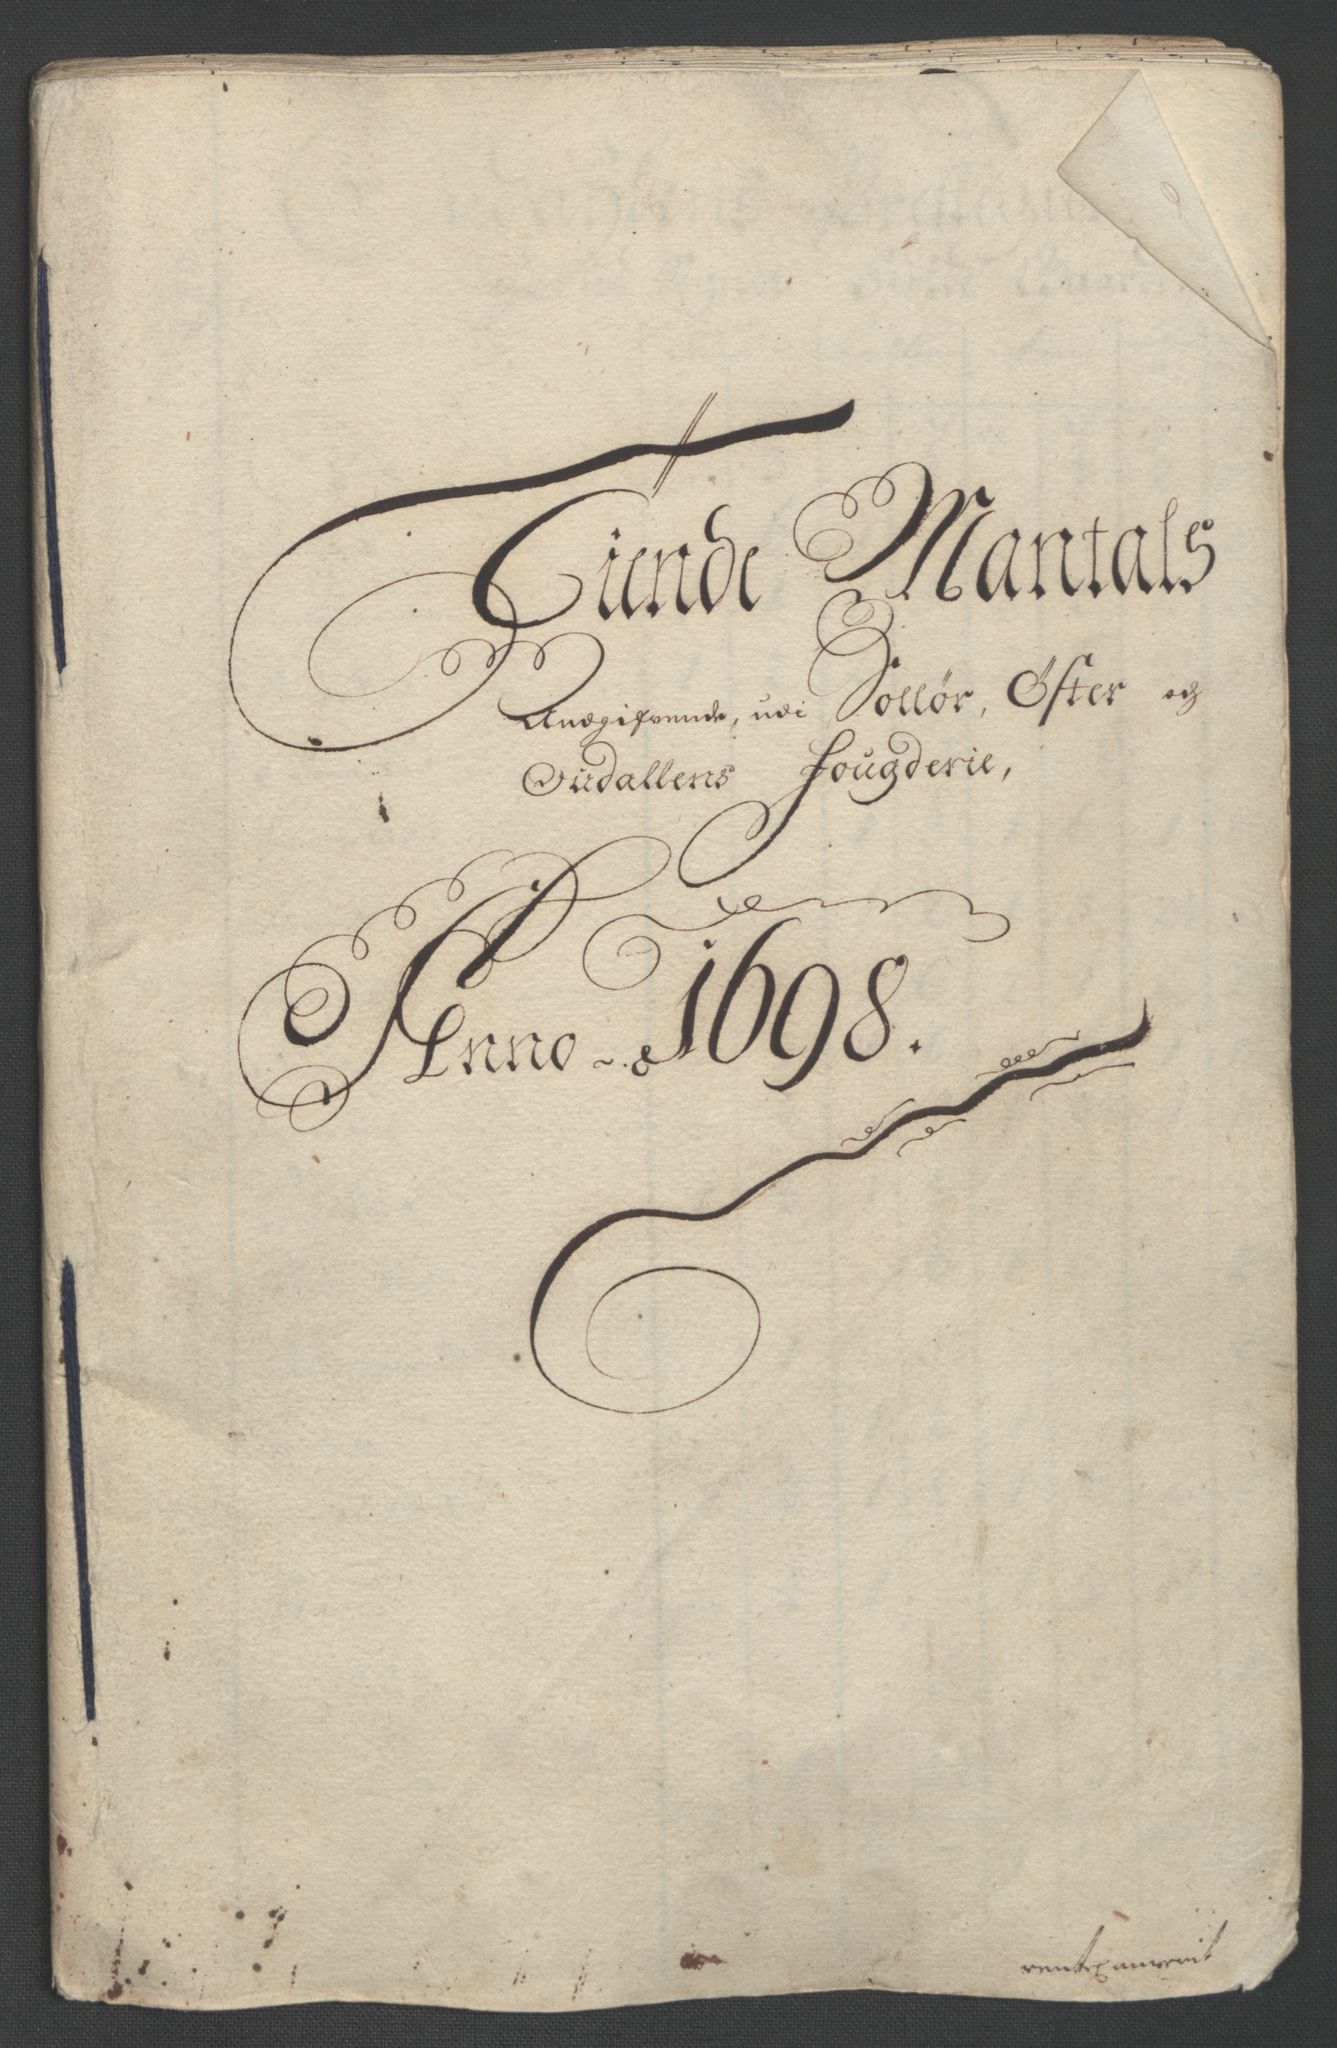 Tiende Mantals
Andgifvende, udi Sollør, Øster och
Oudallens fougderie,
Anno 1698.